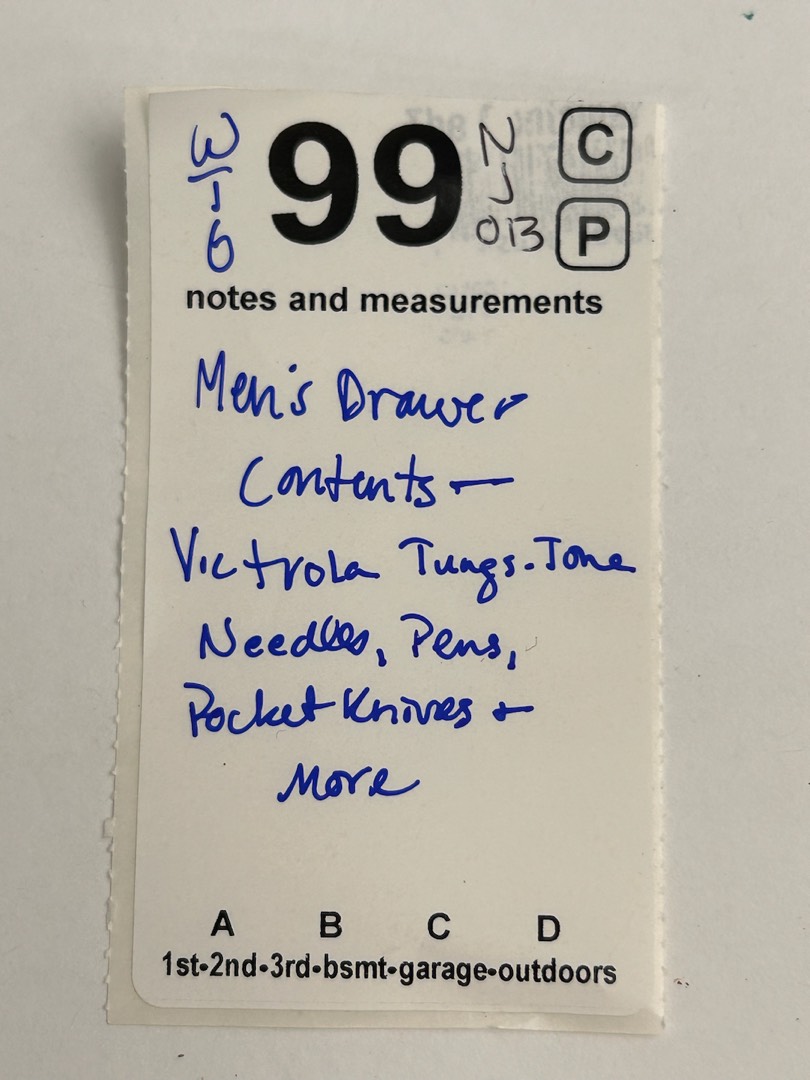 W
1
6
99
N
J
013
C
P
notes and measurements
Men's Drawer
Contents —
Victrola Tungs-Tone
Needles, Pens,
Pocket Knives +
More
A B C D
1st•2nd•3rd•bsmt•garage•outdoors